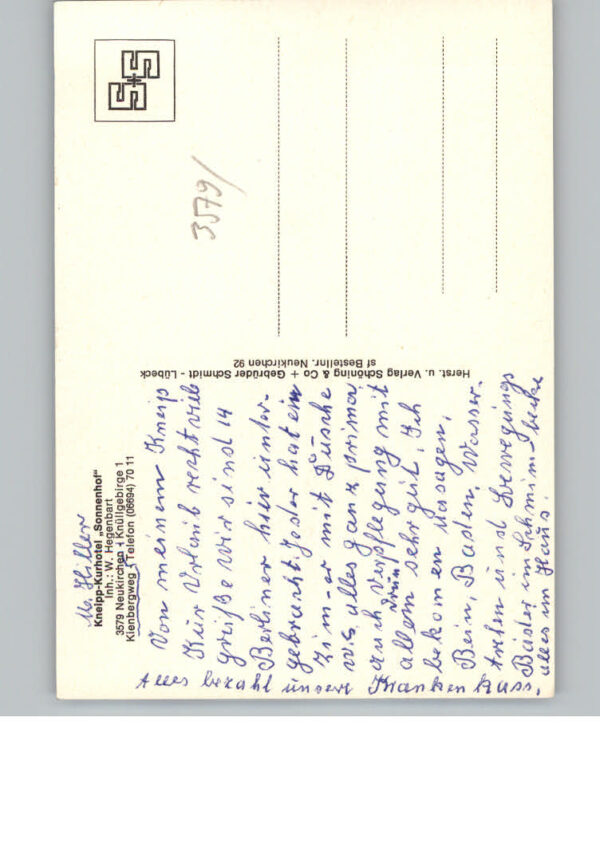 M. Hiller
Kneipp-Kurhotel „Sonnenhof"
Inh.: W. Hegenbart
3579 Neukirchen + Knüllgebirge 1
Kienbergweg - Telefon (06694) 70 11
Von meinem Kneip
Kur Urlaub recht viele
greiße wir sind 14
Berliner hier unter-
gebracht. Jeder hat ein
Zim-er mit Dusche
W.S. alles ganz prima
auch Verpflegung mit
drum
allem sehr gut. Ich
bekomen Masagen,
Bein, Baden, Wasser-
treten und Bewegungs
Bäder im Schwim-becke
alles im Haus.
Alles bezahl unsere Kranken kass,
Herst. u. Verlag Schöning & Co + Gebrüder Schmidt - Lübeck
sf Bestellnr. Neukirchen 92
3579/
S+S